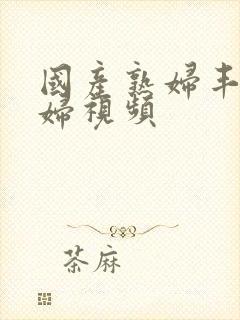 國產熟婦丰
婦視頻
荼麻